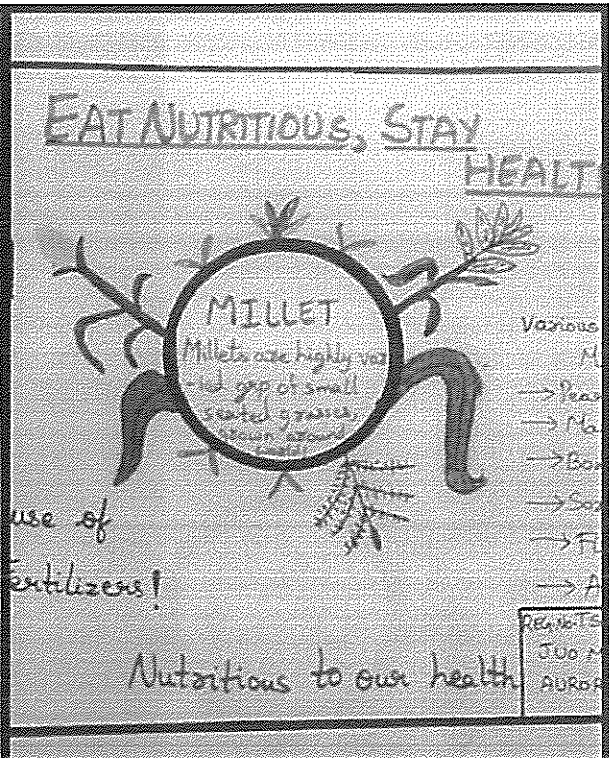 EAT NUTRITIOUS, STAY
HEALT
MILLET
Millets are highly var
-ied grp of small
seeded grasses,
grown around
world
Various
M
→ Pear
→ Ma
→ Bar
→ So
→ Fi
→ A
use of
Fertilizers!
Nutritious to our health
REG.No TS
JUO M
AUROR